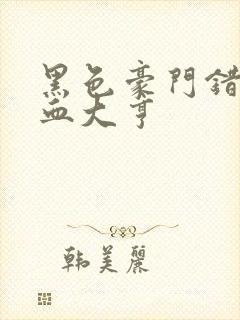 黑色豪門錯
血大亨
韩美麗